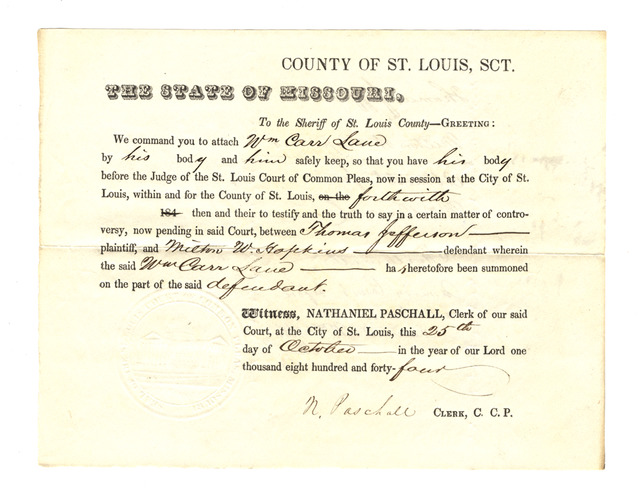 COUNTY OF ST. LOUIS, SCT.
THE STATE OF MISSOURI,
To the Sheriff of St. Louis County—GREETING:
We command you to attach Wm Carr Lane
by his body and him safely keep, so that you have his body
before the Judge of the St. Louis Court of Common Pleas, now in session at the City of St.
Louis, within and for the County of St. Louis, on the forthwith
184 then and their to testify and the truth to say in a certain matter of contro-
versy, now pending in said Court, between Thomas Jefferson
plaintiff, and Milton W. Hopkins defendant wherein
the said Wm Carr Lane has heretofore been summoned
on the part of the said defendant.
Witness, NATHANIEL PASCHALL, Clerk of our said
Court, at the City of St. Louis, this 25th
day of October in the year of our Lord one
thousand eight hundred and forty-four
N. Paschall CLERK, C. C. P.